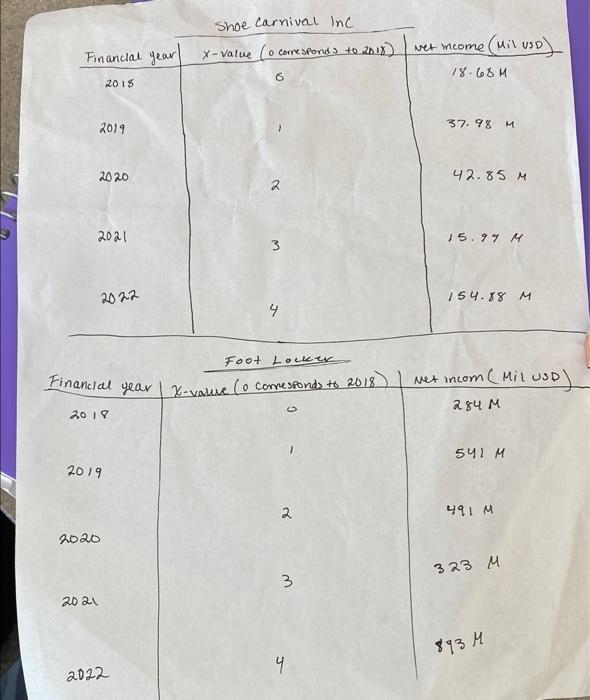 Shoe Carnival Inc
Financial year X-value (0 corresponds to 2018) Net income (Mil USD)
2018 0 18.68 M
2019 1 37.98 M
2020 2 42.85 M
2021 3 15.99 M
2022 4 154.88 M
Foot Locker
Financial year X-value (0 corresponds to 2018) Net incom (Mil USD)
2018 0 284 M
2019 1 541 M
2020 2 491 M
2021 3 323 M
2022 4 893 M